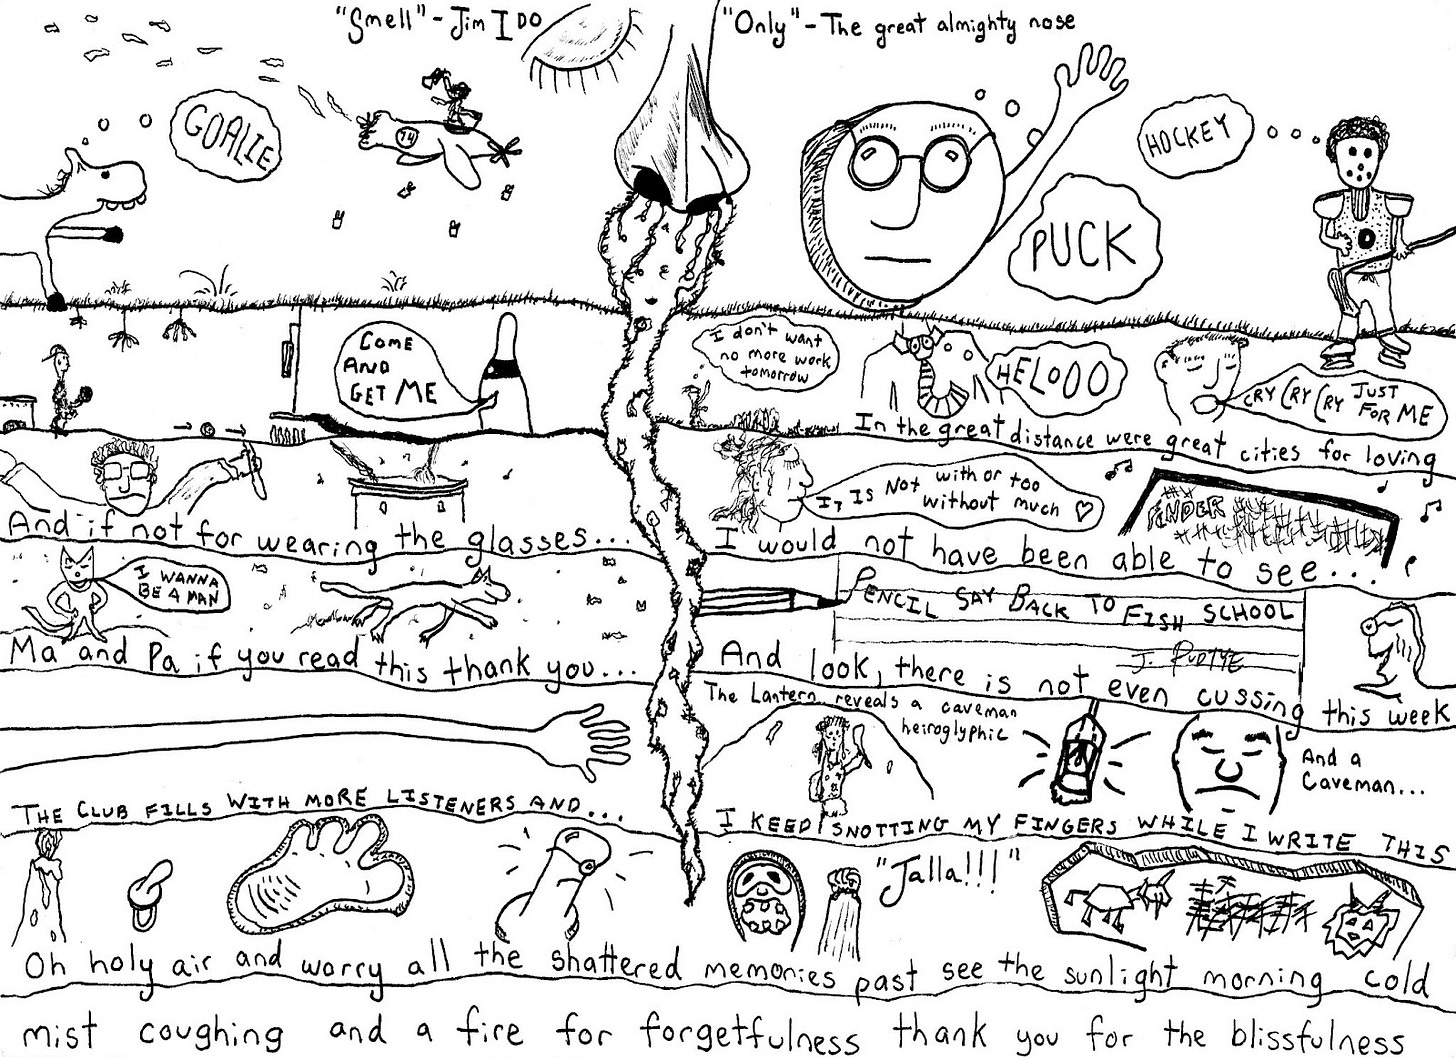 "Smell" - Jim I DO
"Only" - The great almighty nose
GOALIE
74
HOCKEY
PUCK
COME
AND
GET ME
I don't want
no more work
tomorrow
HELOOO
CRY CRY CRY JUST
FOR ME
In the great distance were great cities for loving
And if not for wearing the glasses...
It IS NOT with or too
without much ♡
I would not have been able to see...
I WANNA
BE A MAN
PENCIL SAY BACK TO FISH SCHOOL
Ma and Pa if you read this thank you...
And look, there is not even cussing this week
The Lantern reveals a caveman
heiroglyphic
And a
Caveman...
THE CLUB FILLS WITH MORE LISTENERS AND...
I KEEP SNOTTING MY FINGERS WHILE I WRITE THIS
"Jalla!!!"
Oh holy air and worry all the shattered memories past see the sunlight morning cold
mist coughing and a fire for forgetfulness thank you for the blissfulness